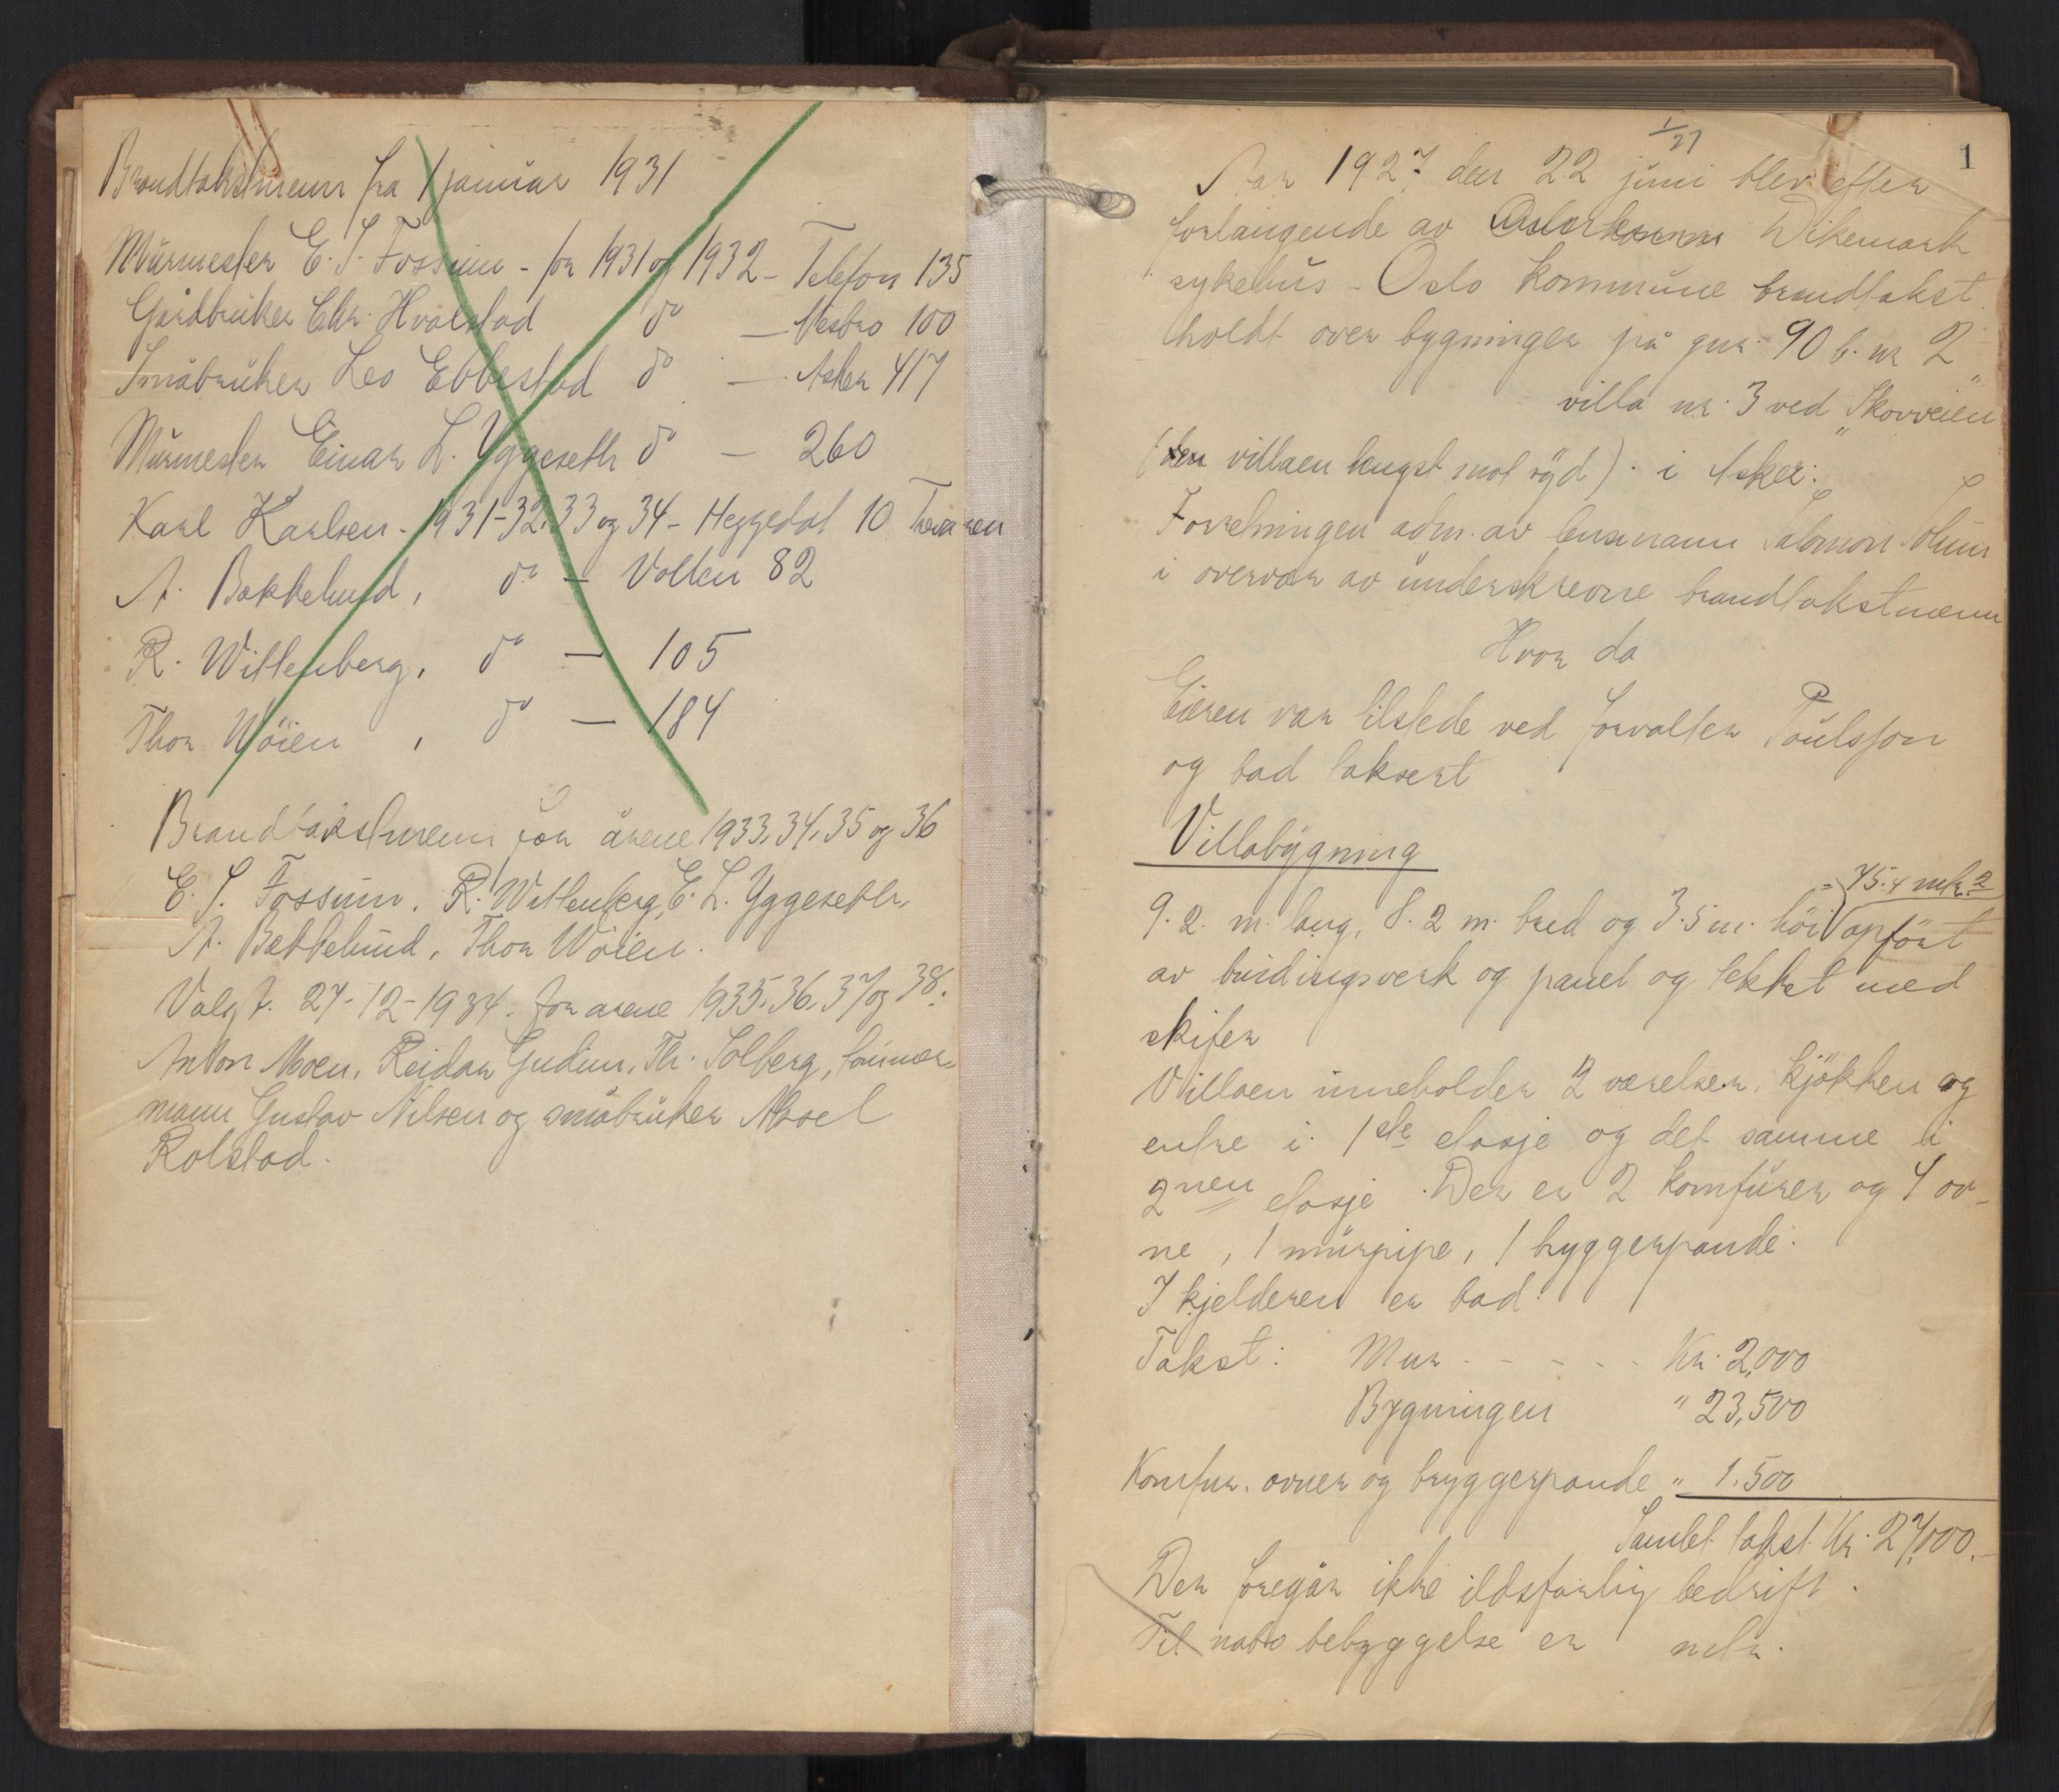 Brandtakstmenn fra 1 januar 1931
Murmester E. S. Fossum - for 1931 og 1932 - Telefon 135
Gårdbruker Chr. Hvalstad do — Nesbro 100
Småbruker Leo Ebbestad do — Asker 417
Murmester Einar L. Yggeseth do — 260
Karl Karlsen - 1931-32, 33 og 34 - Heggedal 10
A. Bakkelund, do — Vollen 82
R. Wittenberg, do — 105
Thor Wöien, do — 184
Brandtakstmenn for årene 1933, 34, 35 og 36
E. S. Fossum, R. Wittenberg, E. L. Yggeseth,
A. Bakkelund, Thor Wöien.
Valgt. 27-12-1934. for årene 1935, 36, 37 og 38.
Anton Moen, Reidar Gudim, Th. Solberg, tømmer-
mann Gustav Nilsen og småbruker Aksel
Rolstad.
1
1/27
Aar 1927 den 22 juni blev efter
forlangende av Dikemark
sykehus - Oslo kommune brandtakst
holdt over bygninger på gnr. 90 b. nr 2
villa nr. 3 ved „Skovveien"
(den villaen lengst mot syd). i Asker.
Forretningen adm. av lensmann Salomon Solum
i overvær av underskrevne brandtakstmenn
Hvor da
Eieren var tilstede ved forvalter Poulsson
og bad taksert
Villabygning
= 75.4 mtr.2
9.2. m. lang, 8.2 m. bred og 3.5 m. höi opfört
av bindingsverk og panel og tekket med
skifer
Villaen inneholder 2 værelser, kjökken og
entre i 1ste etasje og det samme i
2nen etasje. Der er 2 komfurer og 4 ov-
ne, 1 murpipe, 1 bryggerpande.
I kjelderen er bad.
Takst: Mur - - - - - Kr. 2,000
Bygningen " 23,500
Komfur. ovner og bryggerpande " 1.500
Samlet takst Kr. 27,000.-
Der foregår ikke ildsfarlig bedrift.
Til nabo bebyggelse er mtr.